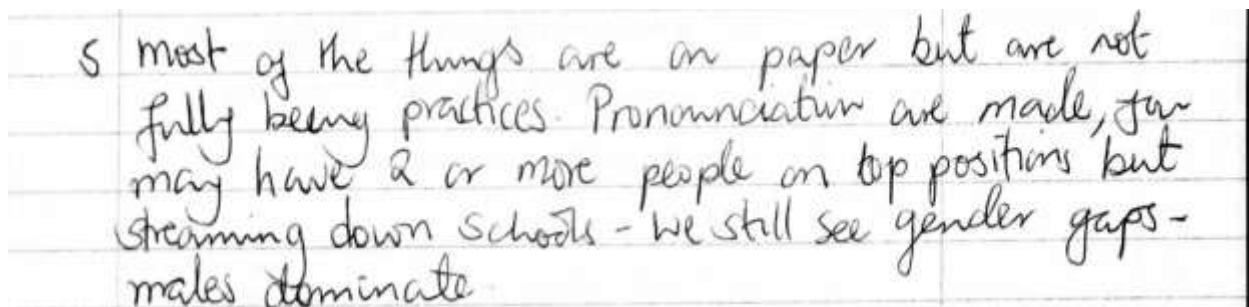 5 most of the things are on paper but are not
fully being practices. Pronounciation are made, you
may have 2 or more people on top positions but
streaming down schools - we still see gender gaps -
males dominate